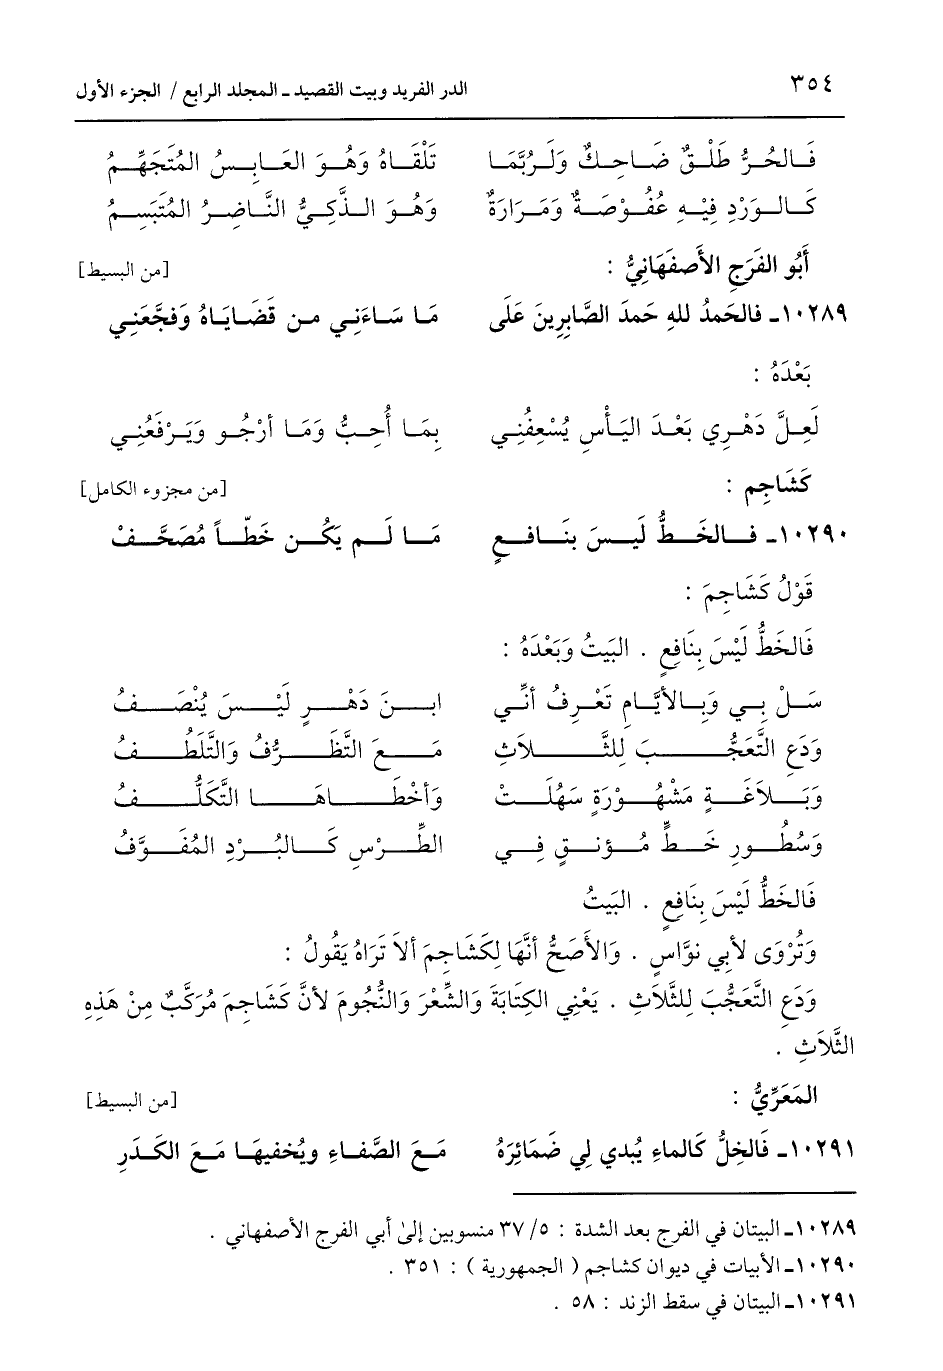 ٣٥٤ الدر الفريد وبيت القصيد ـ المجلد الرابع / الجزء الأول
فَالحُرُّ طَلْقٌ ضَاحِكٌ وَلَرُبَّمَا تَلْقَاهُ وَهُوَ العَابِسُ المُتَجَهِّمُ
كَالوَرْدِ فِيْهِ عُفُوْصَةٌ وَمَرَارَةٌ وَهُوَ الذَّكِيُّ النَّاضِرُ المُتَبَسِمُ
أَبُو الفَرَجِ الأَصفَهَانِيُّ : [من البسيط]
١٠٢٨٩ـ فالحَمدُ للهِ حَمدَ الصَّابِرِينَ عَلَى مَا سَاءَنِي من قَضَايَاهُ وَفجَّعَنِي
بَعْدَهُ :
لَعِلَّ دَهْرِي بَعْدَ اليَأْسِ يُسْعِفُنِي بِمَا أُحِبُّ وَمَا أرْجُو وَيَرْفَعُنِي
كَشَاجِم : [من مجزوء الكامل]
١٠٢٩٠ـ فالخَطُّ لَيسَ بنَافعٍ مَا لَم يَكُن خَطّاً مُصَحَّفْ
قَوْلُ كَشَاجِمَ :
فَالخَطُّ لَيْسَ بِنَافِعٍ . البَيتُ وَبَعْدَهُ :
سَلْ بِي وَبالأيَّامِ تَعْرِفُ أنِّي ابنَ دَهْرٍ لَيْسَ يُنْصَفُ
وَدَعِ التَّعَجُّبَ لِلثَّلاَثِ مَعَ التَّظَرُّفُ وَالتَّلَطُفُ
وَبَلاَغَةٍ مَشْهُوْرَةٍ سَهُلَتْ وَأخْطَاهَا التَّكَلُّفُ
وَسُطُورِ خَطٍّ مُؤنقٍ فِي الطِّرْسِ كَالبُرْدِ المُفَوَّفُ
فَالخَطُّ لَيْسَ بِنَافِعٍ . البَيتُ
وَتُرْوَى لأبي نوَّاسٍ . وَالأَصَحُّ أنَّهَا لِكَشَاجِمَ ألاَ تَرَاهُ يَقُولُ :
وَدَعِ التَّعَجُّبَ لِلثَّلاَثِ . يَعْنِي الكِتَابَةَ وَالشِّعْرَ وَالنُّجُومَ لأنَّ كَشَاجِمَ مُرَكَّبٌ مِنْ هَذِهِ
الثَّلاَثِ .
المَعَرِّيُّ : [من البسيط]
١٠٢٩١ـ فَالخِلُّ كَالماءِ يُبدي لِي ضَمَائِرَهُ مَعَ الصَّفاءِ ويُخفيهَا مَعَ الكَدَرِ
١٠٢٨٩ـ البيتان في الفرج بعد الشدة : ٥/ ٣٧ منسوبين إلىٰ أبي الفرج الأصفهاني .
١٠٢٩٠ـ الأبيات في ديوان كشاجم ( الجمهورية ) : ٣٥١ .
١٠٢٩١ـ البيتان في سقط الزند : ٥٨ .